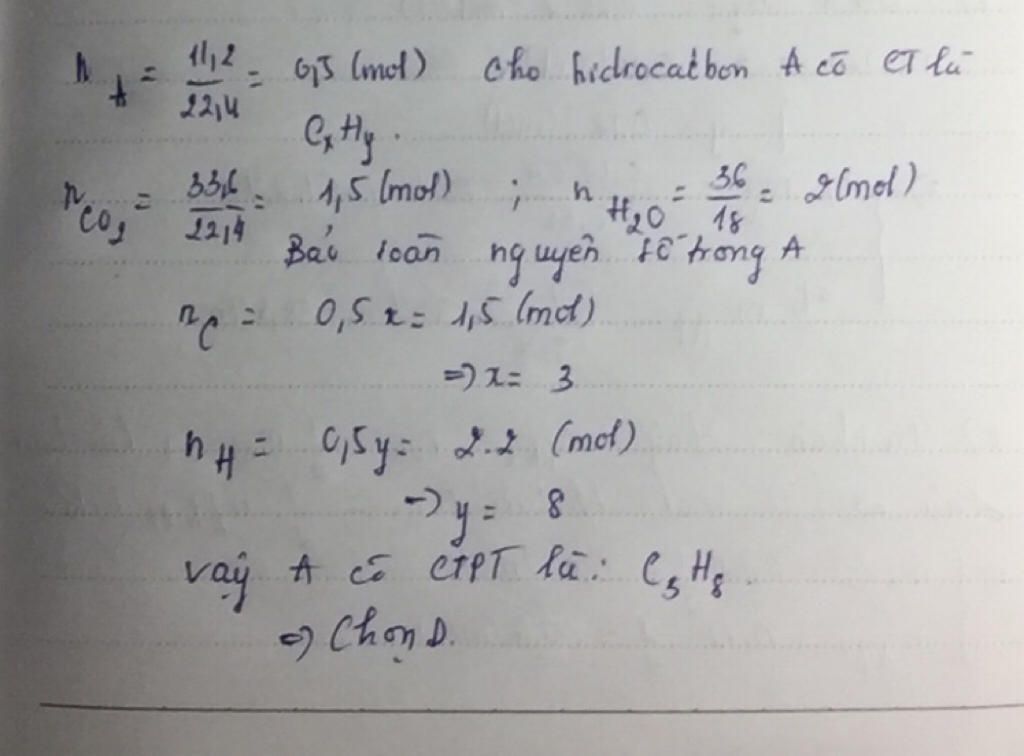 n_A = 11,2/22,4 = 0,5 (mol) cho hidrocacbon A có CT là
C_xH_y.
n_CO₂ = 33,6/22,4 = 1,5 (mol) ; n_H₂O = 36/18 = 2 (mol)
Bảo toàn nguyên tố trong A
n_C = 0,5x = 1,5 (mol)
=> x = 3
n_H = 0,5y = 2.2 (mol)
-> y = 8
vậy A có CTPT là: C₃H₈.
=> Chọn D.